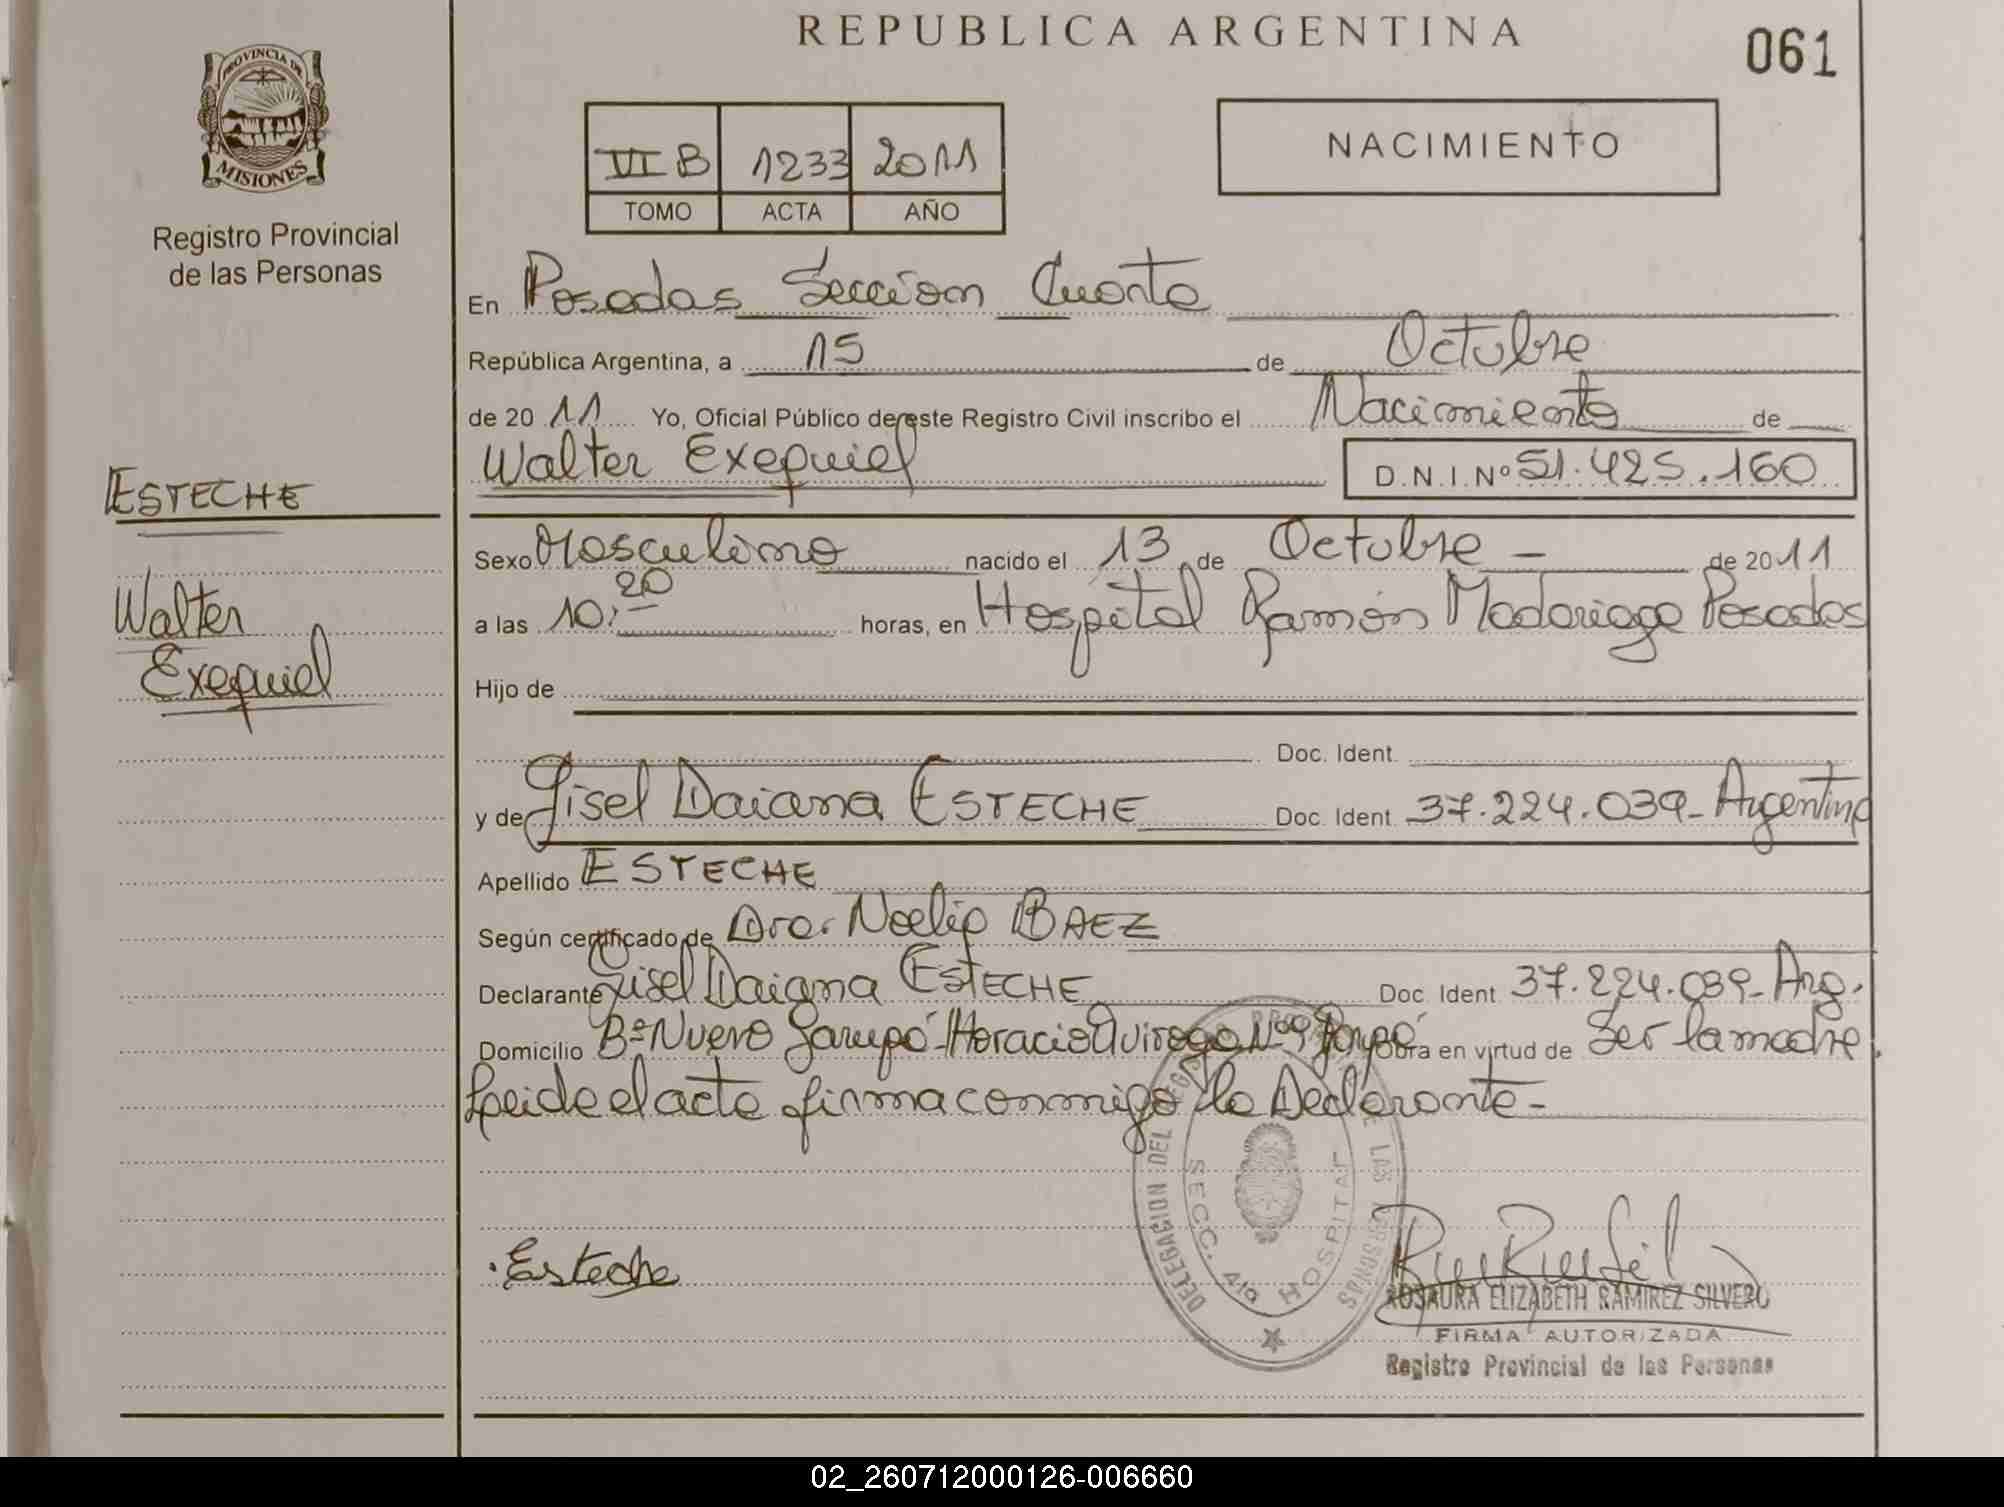 REPUBLICA ARGENTINA
061
PROVINCIA DE
MISIONES
Registro Provincial
de las Personas
VI B 1233 2011
TOMO ACTA AÑO
NACIMIENTO
En Posadas Sección Cuarta
República Argentina, a 15 de Octubre
de 20 11 Yo, Oficial Público de este Registro Civil inscribo el Nacimiento de
Walter Exequiel D.N.I.Nº 51.425.160
ESTECHE
Walter
Exequiel
Sexo Masculino nacido el 13 de Octubre - de 20 11
a las 10:20 horas, en Hospital Ramón Madariaga Posadas
Hijo de
Doc. Ident.
y de Gisel Daiana ESTECHE Doc. Ident. 37.224.039 - Argentina
Apellido ESTECHE
Según certificado de Dra. Noelia BAEZ
Declarante Gisel Daiana ESTECHE Doc. Ident. 37.224.039 - Arg.
Domicilio Bº Nuevo Garupá - Horacio Quiroga Nº 9 Garupá Obra en virtud de Ser la madre.
Leida el acta firma conmigo la Declarante -
DELEGACION DEL REGISTRO PROVINCIAL DE LAS PERSONAS
SECC. 4ta HOSPITAL
Esteche
ROSAURA ELIZABETH RAMIREZ SILVERO
FIRMA AUTORIZADA
Registro Provincial de las Personas
02_260712000126-006660